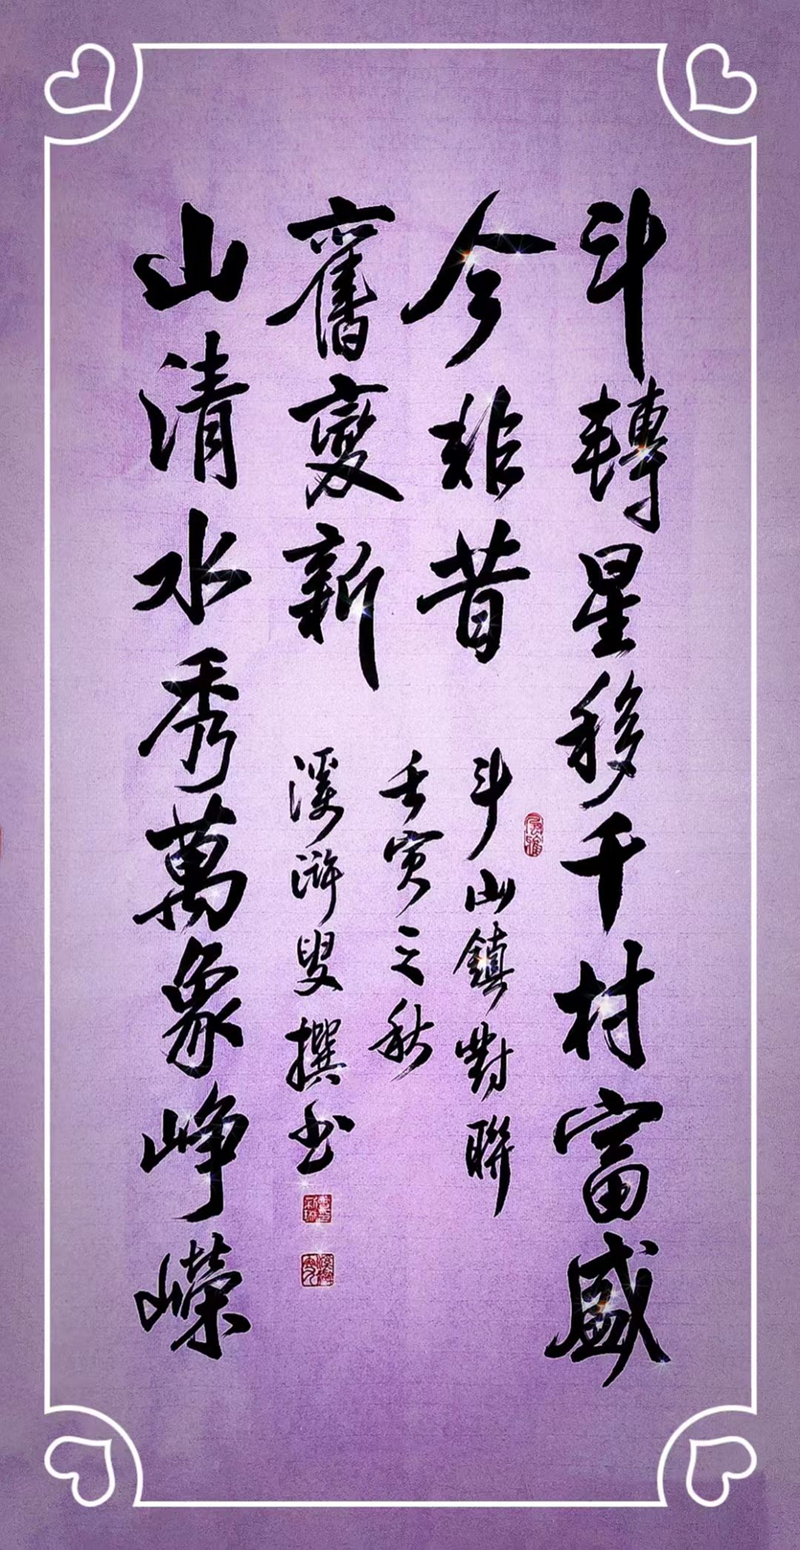 斗轉星移千村富盛
今非昔
山清水秀萬象峥嶸
舊變新
斗山鎮對聯
壬寅之秋
溪滸叟撰书